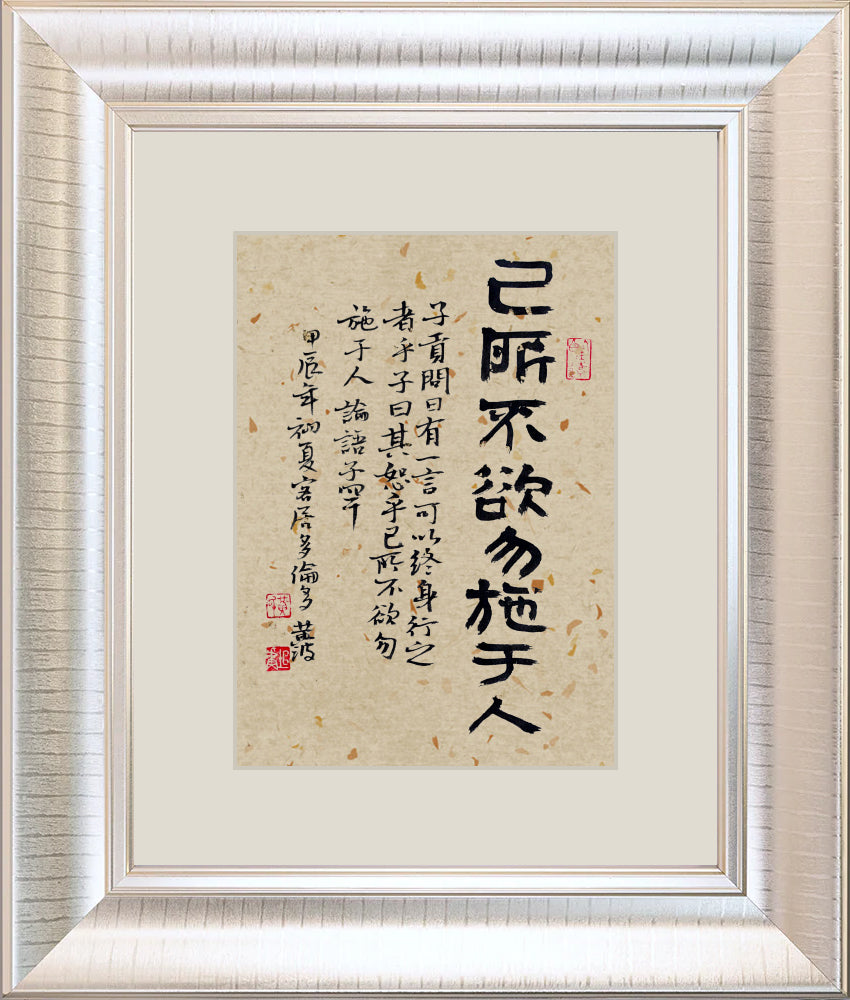 己所不欲勿施于人
子貢問曰有一言可以終身行之
者乎子曰其恕乎己所不欲勿
施于人 論語子罕
甲辰年初夏客居多倫多 黄波